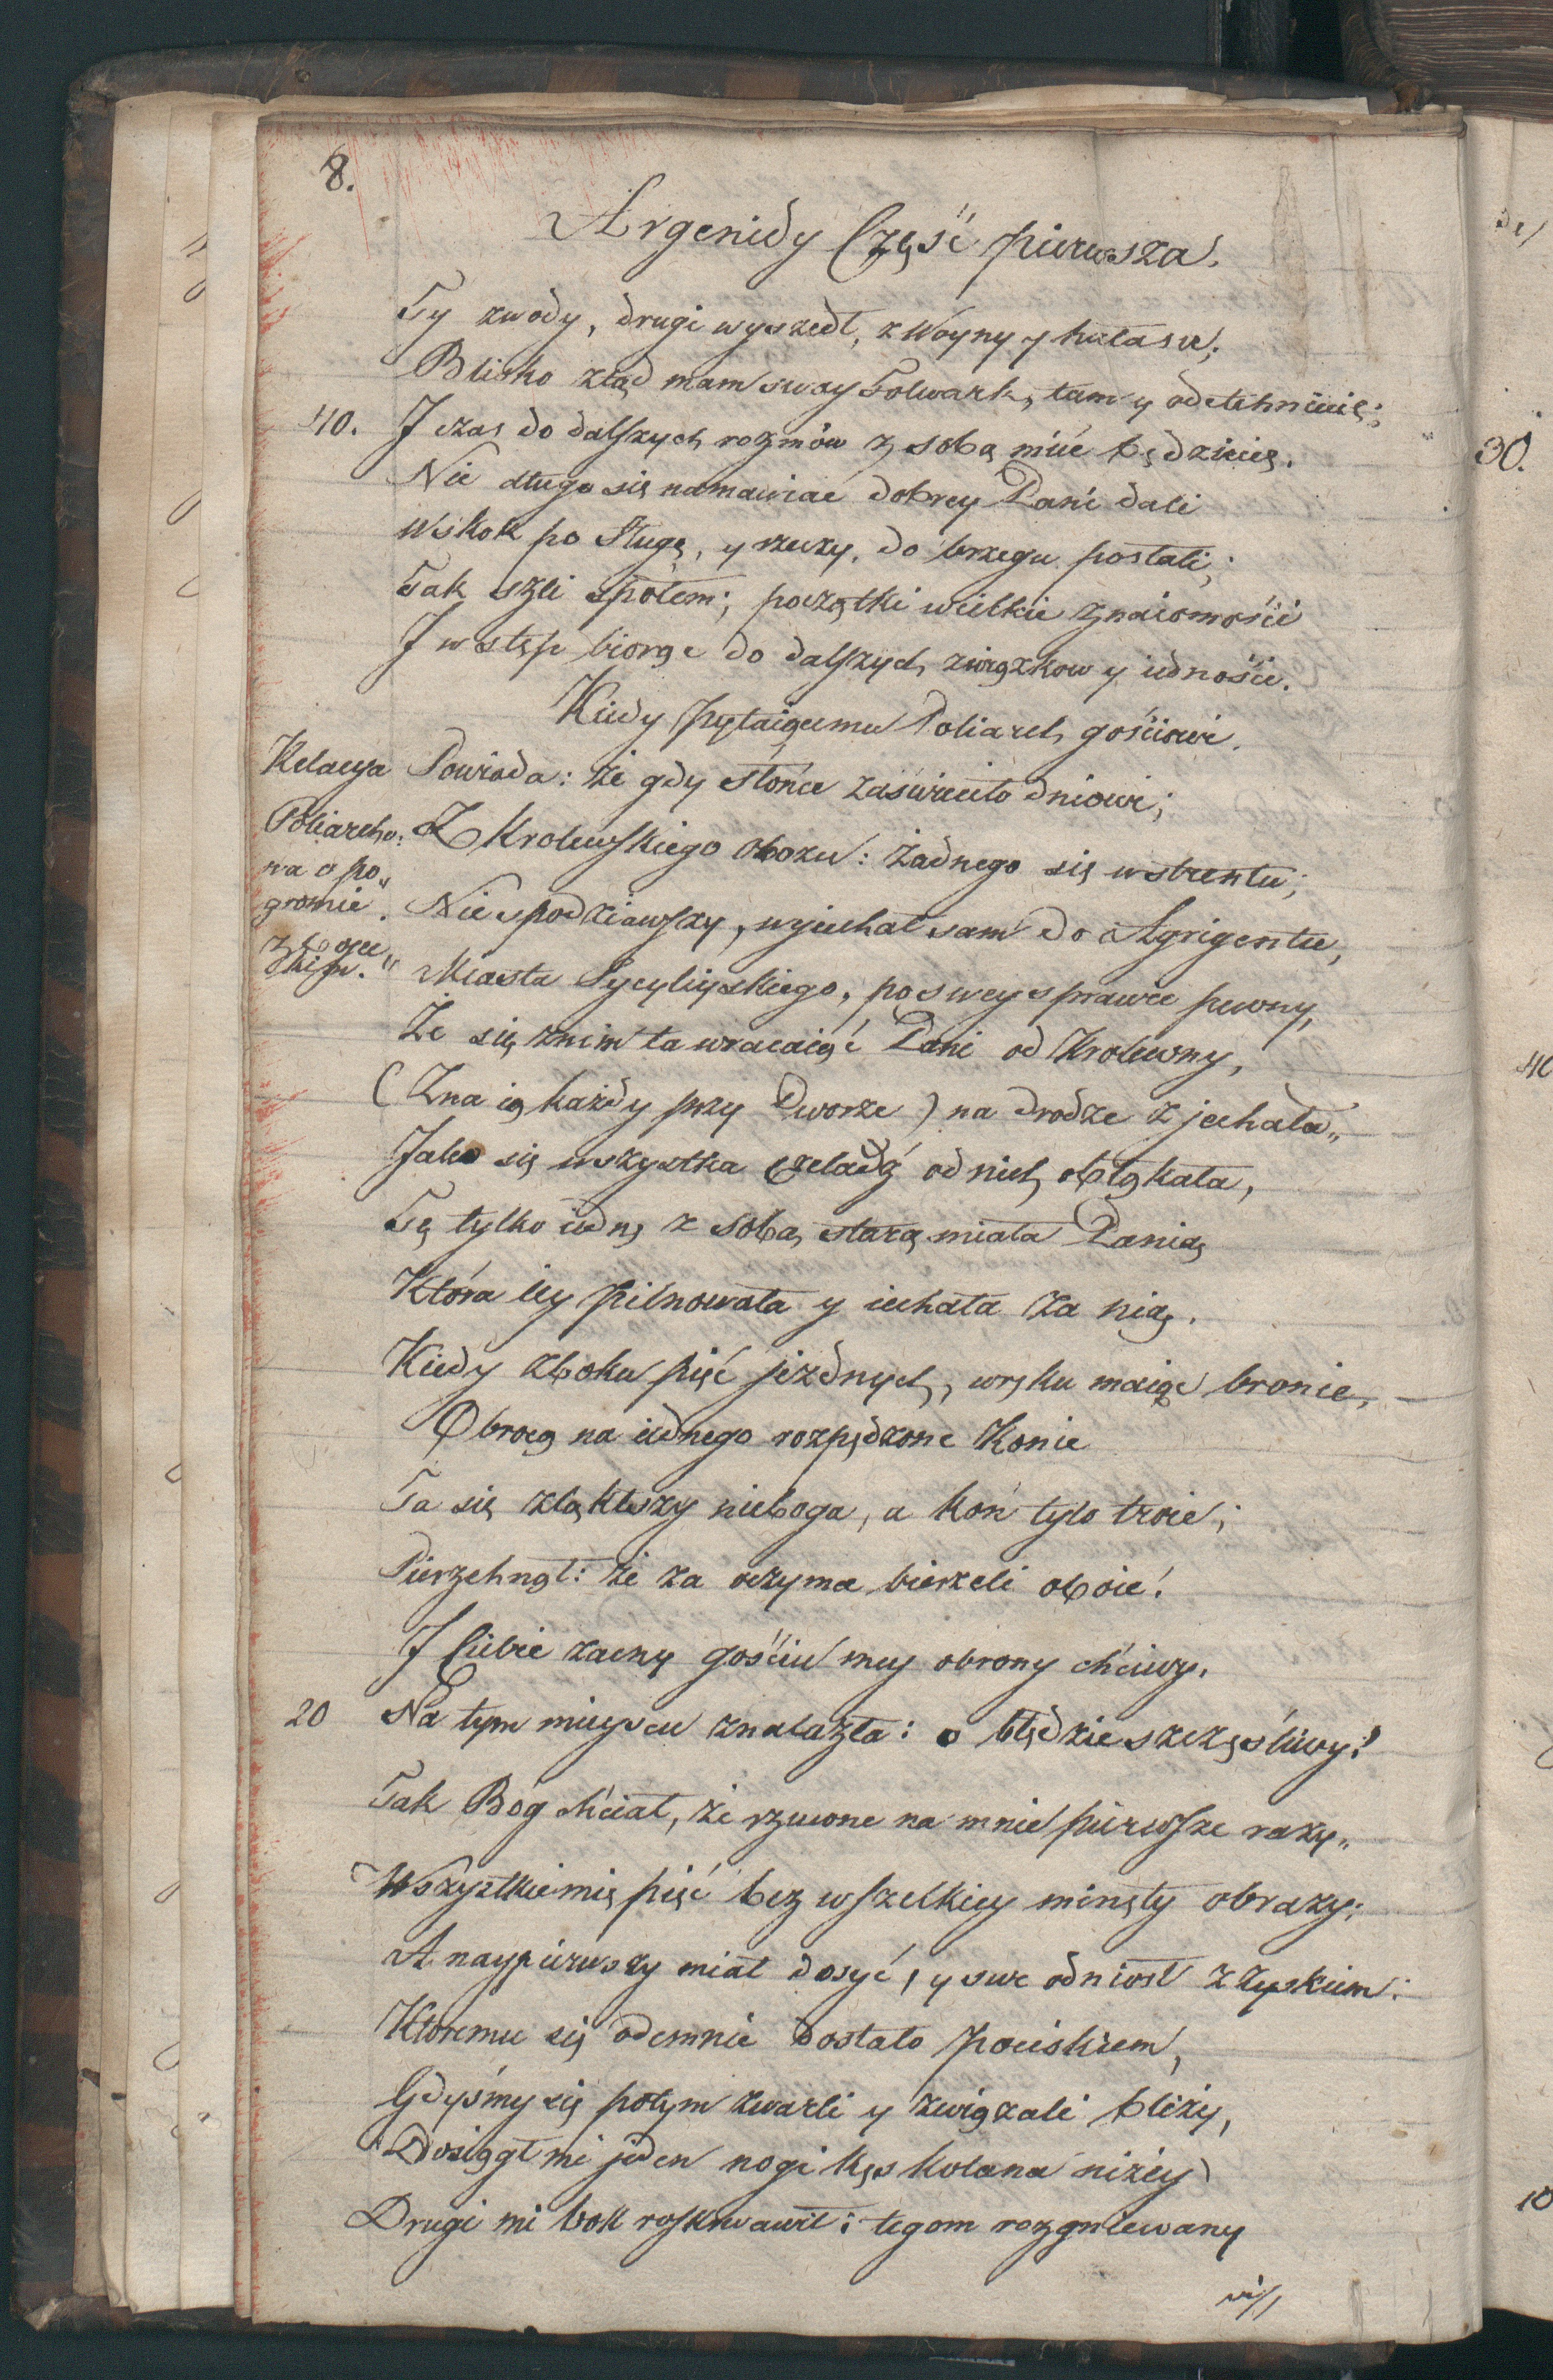 8.
Argenidy Część pierwsza.
Ty zwody, drugi wyszedł, z Woyny y hałasu;
Blisko ztąd mam swoy Folwark, tam y odetchniecię;
40. J czas do dalszych rozmów z sobą mieć będziecię.
Nie długo się namawiać dobrey Pani dali
Wskok po sługę, y rzeczy, do brzegu posłali;
Tak szli społem; początki wielkie znaiomości
J wstęp biorąc do dalszych związkow y iedności.
Kiedy pytaiącemu Poliarch gościowi.
Relacya Powiada: że gdy słońce zaświeciło dniowi;
Poliarcho: Z Krolewskiego obozu: żadnego się wstrentu;
wa o po„
gromie. Niespodziawszy, wyiechał sam do Agrigentu,
z Miasta Sycyliyskiego, po swey sprawie pewny,
Że się znim ta wracaiąć Pani od Krolewny,
(Zna ią każdy przy Dworze) na drodze zjechała„
Jako się wszystka czeladź od niey obłąkała,
Tę tylko iedną z sobą starą miała Panią
Która iey pilnowała y iechała za nią.
Kiedy zboku pięć jezdnych, wręku maiąc bronie,
Obrocą na iednego rozpędzone Konie
Ta się zlękłszy nieboga, a koń tylo troie;
Pierzchnął: że za oczyma bierzeli oboie.
J Ciebie zacny gościu mey obrony chciwy.
20 Na tym mieyscu znalazła: o błędzie szczęśliwy!
Tak Bóg chciał, że rzucone na mnie pierwsze razy„
Wszystkie mię pięć bez wszelkiey minęły obrazy;
A naypierwszy miał dosyć, y swe odniosł z zyskiem:
Ktoremu się odemnie dostało pociskiem,
Gdyśmy się potym zwarli y związali bliży,
Dosiągł mi jeden nogi kęs kolana niżey
Drugi mi bok roskrwawił: tegom rozgniewany